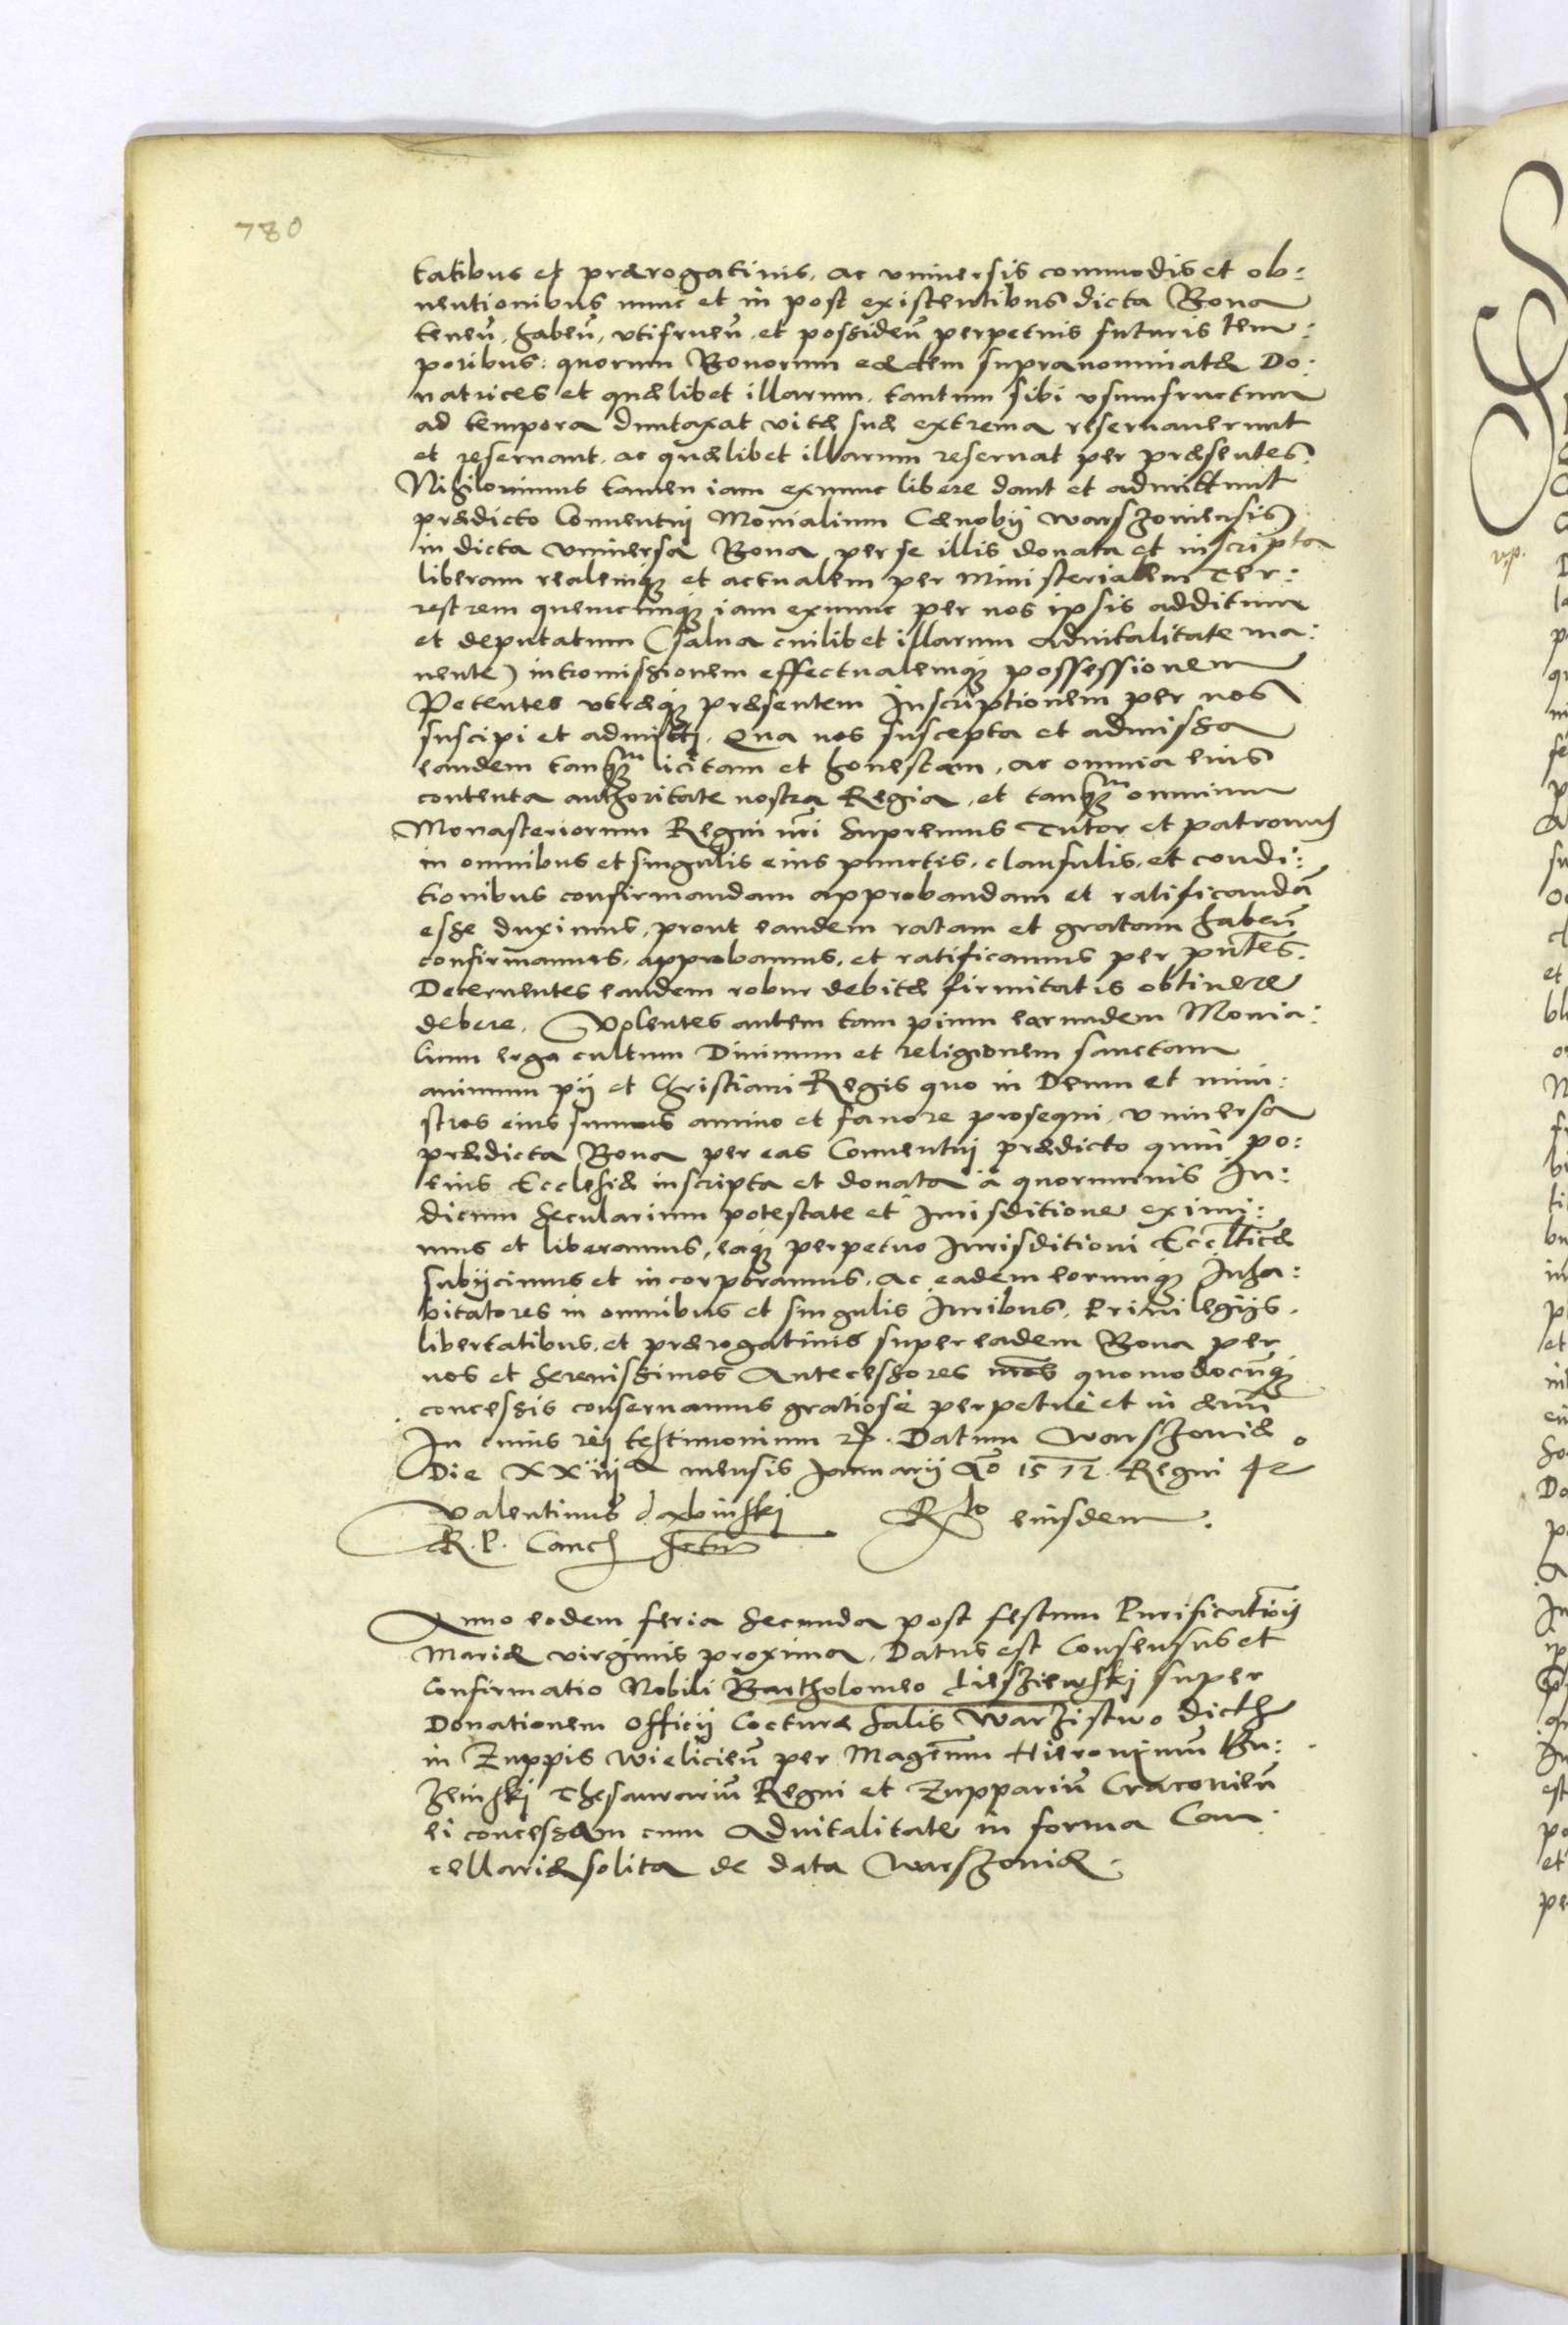 780
tatibus et prærogatiuis, ac vniuersis commodis et ob:
uentionibus nunc et in post existentibus dicta Bona
teneñ, habeñ, vtifrueñ, et possideñ perpetuis futuris tem:
poribus: quorum Bonorum eædem supranominatæ Do:
natrices et quælibet illarum, tantum sibi vsumfructum
ad tempora duntaxat vitæ suæ extrema reseruauerunt
et reseruant, ac quælibet illarum reseruat per præsentes.
Nihilominus tamen iam exnunc libere dant et admittunt
prædicto Conuentuj Monialium Cænobij warszouiensis
in dicta vniuersa Bona per se illis donata et inscripta
liberam realemq; et actualem per Ministerialem Ter:
restrem quemcumq; iam exnunc per nos ipsis additum
et deputatum (salua cuilibet illarum aduitalitate ma:
nente) intromissionem effectualemq; possessionem
Petentes vtræq; præsentem Inscriptionem per nos
suscipi et admittj. Qua nos suscepta et admissa
eandem tanq;m licitam et honestam, ac omnia eius
contenta authoritate nostra Regia, et tanq;m omnium
Monasteriorum Regni nri Supremus Tutor et patronus
in omnibus et singulis eius punctis, clausulis, et condi:
tionibus confirmandam approbandam et ratificandã
esse duximus, prout eandem ratam et gratam habeñ
confirmamus, approbamus, et ratificamus per pñtes.
Decernentes eandem robur debitæ firmitatis obtinere
debere. Volentes autem tam pium earumdem Monia:
lium erga cultum Diuinum et religionem sanctam
animum pij et Christiani Regis quo in Deum et mini:
stros eius sumus animo et fauore prosequi, vniuersa
prædicta Bona per eas Conuentuj prædicto quin po:
eius Ecclesiæ inscripta et donata à quorumuis Iu:
dicum Secularium potestate et Iurisditione eximi:
mus et liberamus, eaq; perpetuo Iurisditioni Eccl̃ticæ
subijcimus et incorporamus, ac eadem eorumq; Inha:
bitatores in omnibus et singulis Iuribus, Priuilegijs,
libertatibus, et prærogatiuis super eadem Bona per
nos et Serenissimos Antecessores nr̃os quomodocũq;
concessis conseruamus gratiosè perpetuè et in æuũ
In cuius rej testimonium Datum Warszouiæ
Die XXiiij mensis Januarij Ao 1572. Regni 42
Valentinus dębinskj Rlo eiusdem.
R. P. Canc
Anno eodem feria Secunda post festum Purificationij
Mariæ virginis proxima, Datus est Consensus et
Confirmatio Nobili Bartholomeo super
Donationem officij Cocturæ Salis Warzistwo dictæ
in Zuppis wielicieñ per Mageñm Hieronimũ Bu:
zenskj Thesaurariũ Regni et Zuppariũ Cracouieñ
ei concessam cum Aduitalitate in forma Can:
cellariæ solita de data Warszouiæ.